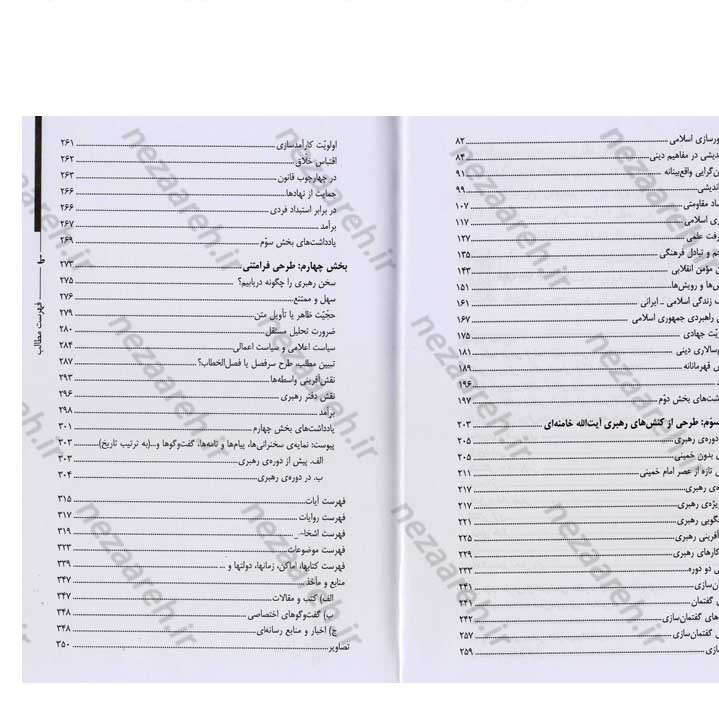 ورسازی اسلامی ۸۲
ندیشی در مفاهیم دینی ۸۴
ن‌گرایی واقع‌بینانه ۹۱
اندیشی ۹۹
ساد مقاومتی ۱۰۷
ری اسلامی ۱۱۷
رفت علمی ۱۲۷
جم و تبادل فرهنگی ۱۳۵
ن مؤمن انقلابی ۱۴۳
ش‌ها و رویش‌ها ۱۵۱
ک زندگی اسلامی ـ ایرانی ۱۶۱
راهبردی جمهوری اسلامی ۱۶۷
ریّت جهادی ۱۷۵
رسالاری دینی ۱۸۱
ش قهرمانانه ۱۸۹
۱۹۶
اشت‌های بخش دوّم ۱۹۷
سوّم: طرحی از کنش‌های رهبری آیت‌الله خامنه‌ای ۲۰۳
دوره‌ی رهبری ۲۰۵
ی بدون خمینی ۲۰۵
تازه از عصر امام خمینی ۲۱۱
ه‌ی رهبری ۲۱۷
یژه‌ی رهبری ۲۱۷
گویی رهبری ۲۲۱
آفرینی رهبری ۲۲۵
کارهای رهبری ۲۲۹
ی دو دوره ۲۳۳
ان‌سازی ۲۴۱
ی گفتمان ۲۴۱
های گفتمان‌سازی ۲۴۲
ی گفتمان‌سازی ۲۵۷
سازی ۲۵۹
اولویّت کارآمدسازی ۲۶۱
اقتباس خلاق ۲۶۲
در چهارچوب قانون ۲۶۳
حمایت از نهادها ۲۶۶
در برابر استبداد فردی ۲۶۶
برآمد ۲۶۷
یادداشت‌های بخش سوّم ۲۶۹
بخش چهارم: طرحی فرامتنی ۲۷۳
سخن رهبری را چگونه دریابیم؟ ۲۷۵
سهل و ممتنع ۲۷۶
حجّیّت ظاهر یا تأویل متن ۲۷۹
ضرورت تحلیل مستقل ۲۸۰
سیاست اعلامی و سیاست اعمالی ۲۸۴
تبیین مطلب، طرح سرفصل یا فصل‌الخطاب؟ ۲۸۷
نقش‌آفرینی واسطه‌ها ۲۹۳
نقش دفتر رهبری ۲۹۶
برآمد ۲۹۸
یادداشت‌های بخش چهارم ۳۰۱
پیوست: نمایه‌ی سخنرانی‌ها، پیام‌ها و نامه‌ها، گفت‌وگوها و...(به ترتیب تاریخ) ۳۰۳
الف. پیش از دوره‌ی رهبری ۳۰۳
ب. در دوره‌ی رهبری ۳۰۴
فهرست آیات ۳۱۵
فهرست روایات ۳۱۷
فهرست اشخا ۳۱۹
فهرست موضوعات ۳۲۳
فهرست کتابها، اماکن، زمانها، دولتها و ... ۳۳۹
منابع و مآخذ ۳۴۷
الف) کتب و مقالات ۳۴۷
ب) گفت‌وگوهای اختصاصی ۳۴۸
ج) اخبار و منابع رسانه‌ای ۳۴۸
تصاویر ۳۵۰
فهرست مطالب
nezaareh.ir